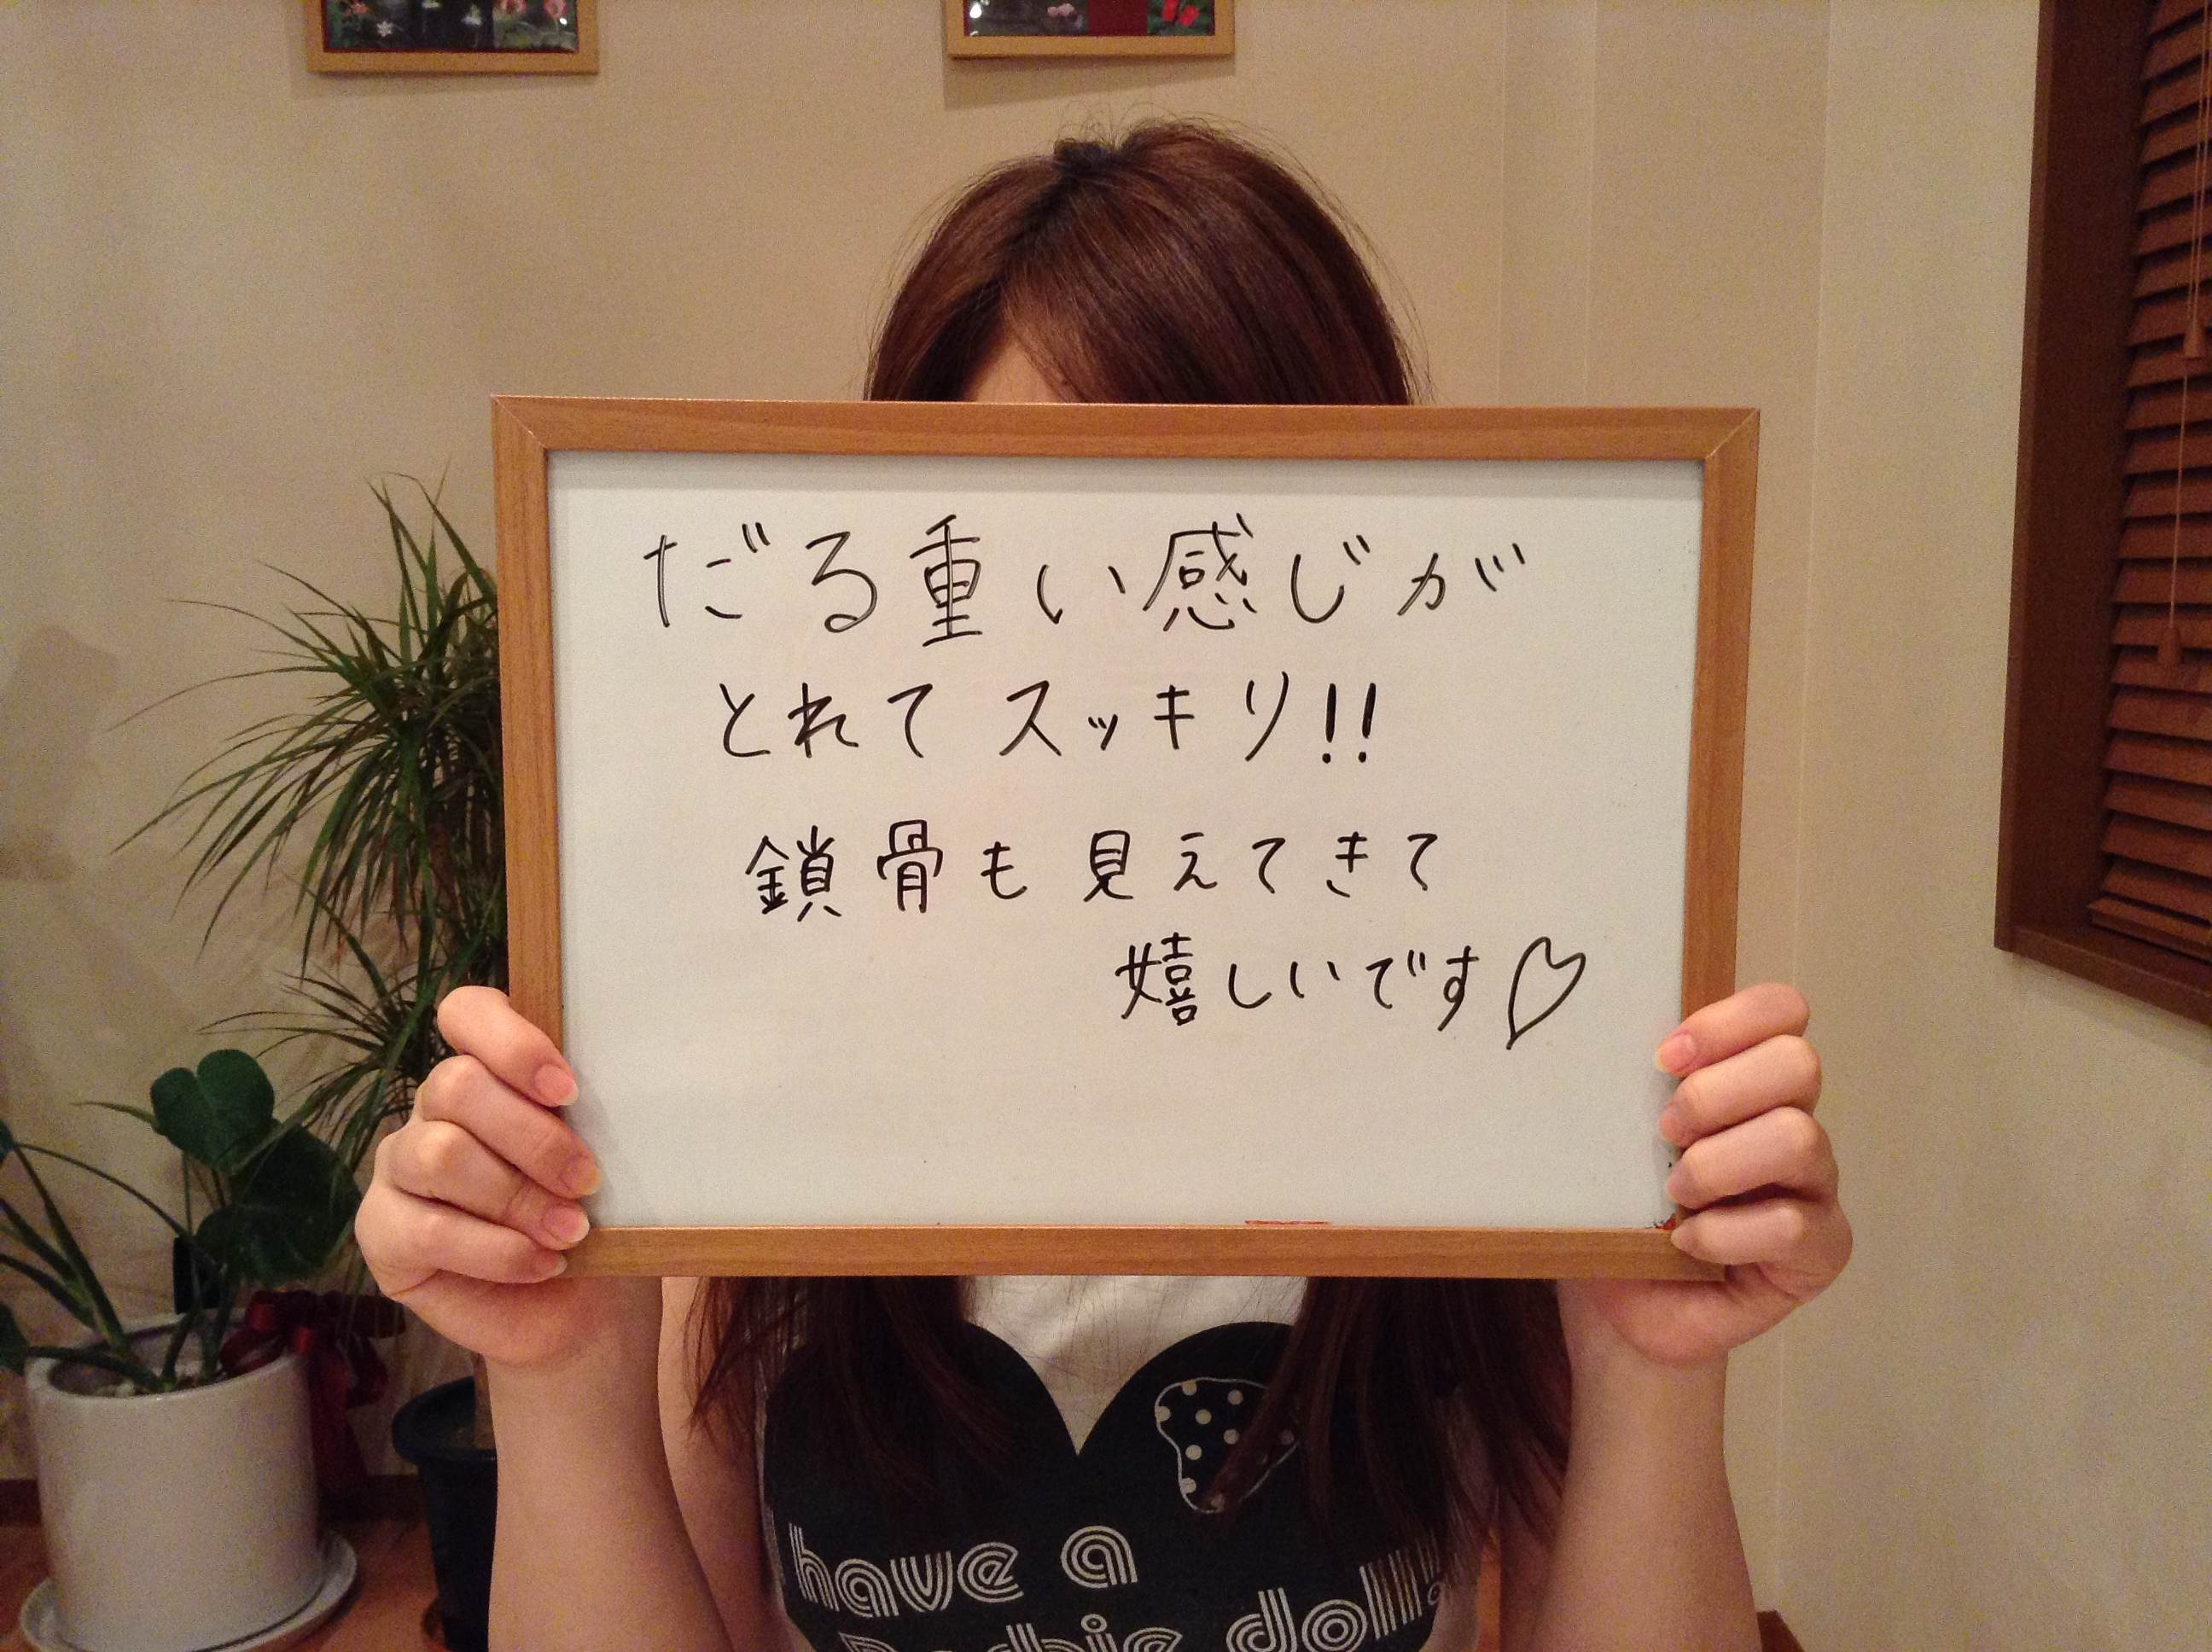 だる重い感じが
とれてスッキリ!!
鎖骨も見えてきて
嬉しいです♡
have a
doll